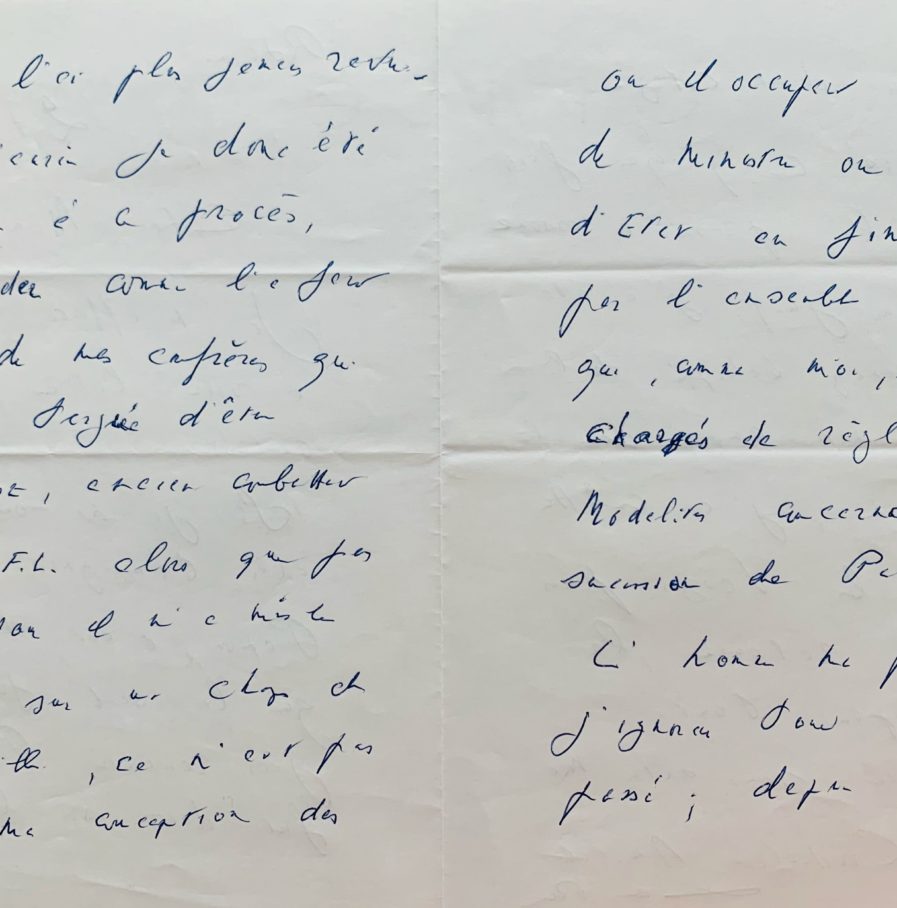 l'ai plus jamais revu.
je donc été
é a procès,
comme l'a fait
de mes confrères qui
d'être
, ancien combattant
F.L. alors que pas
il n'a mis le
sur un champ de
, ce n'est pas
ma conception des
ou il occupait
de Ministre ou
d'Etat en fin
par l'ensemble
qui, comme moi,
chargés de règl
Modalités concerna
succession de Pi
L'homme me p
j'ignorais tout
passé ; depu